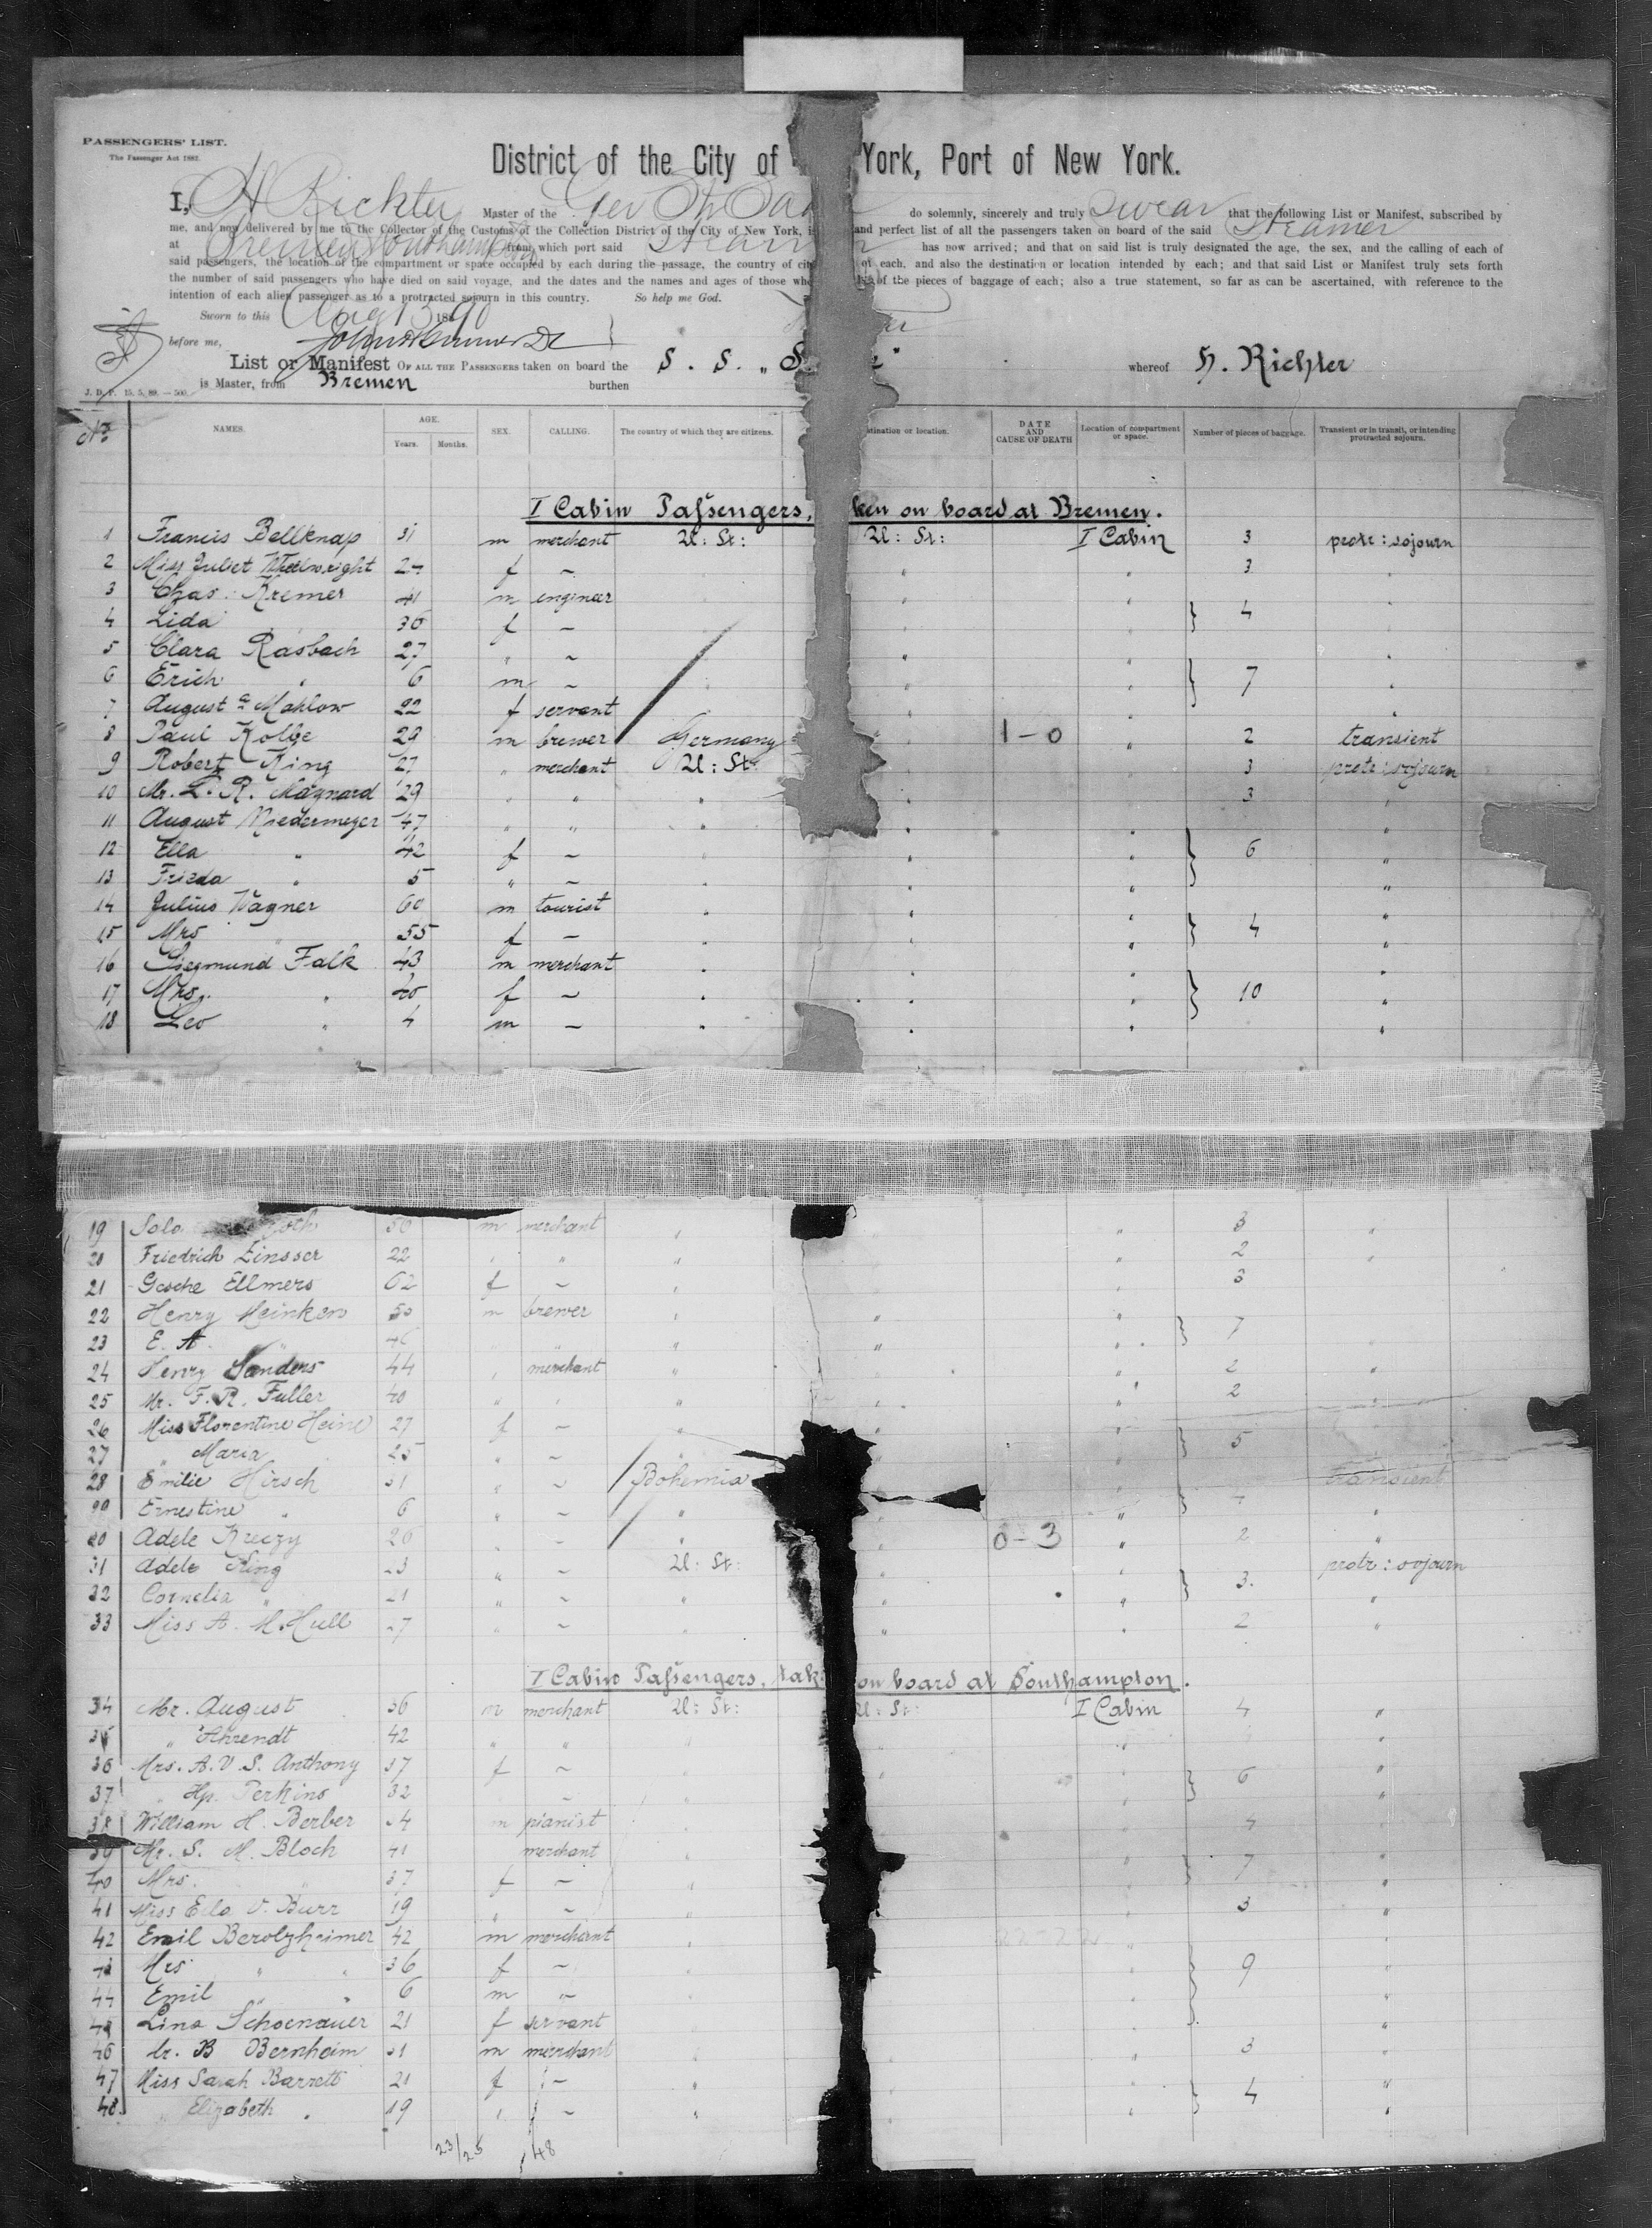 PASSENGERS' LIST.
The Passenger Act 1882.
District of the City of York, Port of New York.
I, H Richter Master of the Ger St do solemnly, sincerely and truly swear that the following List or Manifest, subscribed by
me, and now delivered by me to the Collector of the Customs of the Collection District of the City of New York, is and perfect list of all the passengers taken on board of the said Steamer
at Bremen Southampton from which port said Steamer has now arrived; and that on said list is truly designated the age, the sex, and the calling of each of
said passengers, the location of the compartment or space occupied by each during the passage, the country of of each, and also the destination or location intended by each; and that said List or Manifest truly sets forth
the number of said passengers who have died on said voyage, and the dates and the names and ages of those who of the pieces of baggage of each; also a true statement, so far as can be ascertained, with reference to the
intention of each alien passenger as to a protracted sojourn in this country. So help me God.
Sworn to this Aug 13 1890
before me,
List or Manifest OF ALL THE PASSENGERS taken on board the S. S. „ S whereof H. Richter
is Master, from Bremen burthen
J. D. P. 15. 5. 89. — 500.
No NAMES. AGE. Years. Months. SEX. CALLING. The country of which they are citizens. destination or location. DATE AND CAUSE OF DEATH Location of compartment or space. Number of pieces of baggage. Transient or in transit, or intending protracted sojourn.
I Cabin Passengers, taken on board at Bremen.
1 Francis Bellknap 31 m merchant U: St: U: St: I Cabin 3 protr: sojourn
2 Miss Juliet Wheelwright 27 f ~ " " 3 "
3 Chas. Kremer 41 m engineer " "
4 Lida 36 f ~ } 4
5 Clara Rasbach 27 " ~ "
6 Erich " 6 m ~ } 7
7 Augusta Mahlow 22 f servant
8 Paul Kolbe 29 m brewer Germany " 1-0 " 2 transient
9 Robert King 27 " merchant U: St: 3 protr: sojourn
10 Mr. L. R. Maynard 29 " " " 3 "
11 August Niedermeyer 47 " " " "
12 Ella " 42 f ~ " } 6 "
13 Frieda " 5 " ~ " "
14 Julius Wagner 60 m tourist " "
15 Mrs " 55 f ~ " } 4 "
16 Siegmund Falk 43 m merchant " "
17 Mrs. " 40 f ~ " } 10 "
18 Leo " 4 m ~ " "
19 Solo 56 m merchant " 3 "
20 Friedrich Zinsser 22 " " " 2 "
21 Gesche Ellmers 62 f ~ " 3
22 Henry Meinken 50 m brewer " "
23 E. A. " 46 " " " } 7
24 Henry Sanders 44 " merchant " 2 "
25 Mr. F. R. Fuller 40 " " " 2 "
26 Miss Florentine Heine 27 f ~ "
27 " Maria 25 " ~ } 5
28 Emilie Hirsch 31 " ~ Bohemia " transient
29 Ernestine " 6 " ~ " "
30 Adele Kreczy 26 " ~ " 0-3 " 2 "
31 Adele King 23 " ~ U: St: " protr: sojourn
32 Cornelia " 21 " ~ " } 3. "
33 Miss A. M. Hull 27 " ~ " 2 "
I Cabin Passengers, taken on board at Southampton.
34 Mr. August 36 m merchant U: St: U: St: I Cabin 4 "
35 " Ahrendt 42 " " " "
36 Mrs. A. V. S. Anthony 37 f ~ " "
37 " Hp. Perkins 32 ~ " } 6 "
38 William H. Berber 34 m pianist 4
39 Mr. S. M. Bloch 41 merchant " "
40 Mrs. 37 f ~ " } 7 "
41 Miss Ella V. Burr 19 " ~ " 3 "
42 Emil Berolzheimer 42 m merchant " "
43 Mrs " " 36 f ~ " } 9 "
44 Emil " " 6 m ~ "
45 Lina Schoenauer 21 f servant "
46 B Bernheim 31 m merchant " 3
47 Miss Sarah Barrett 21 f ~ " "
48 " Elizabeth " 19 " ~ " } 4 "
23/25 48